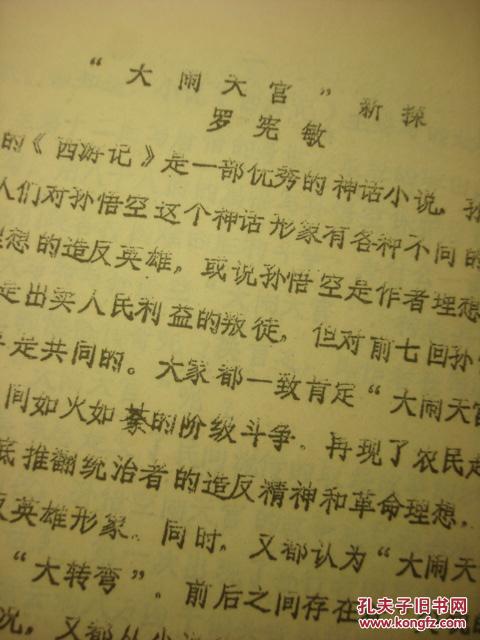 “大闹天宫”新探
罗宪敏
的《西游记》是一部优秀的神话小说，孙
人们对孙悟空这个神话形象有各种不同的
理想的造反英雄，或说孙悟空是作者理想
是出卖人民利益的叛徒，但对前七回孙
是共同的。大家都一致肯定“大闹天宫
间如火如綦的阶级斗争，再现了农民起
底推翻统治者的造反精神和革命理想，
反英雄形象。同时，又都认为“大闹天
“大转弯”。前后之间存在
况，又都从小说
孔夫子旧书网
KONGFZ.COM